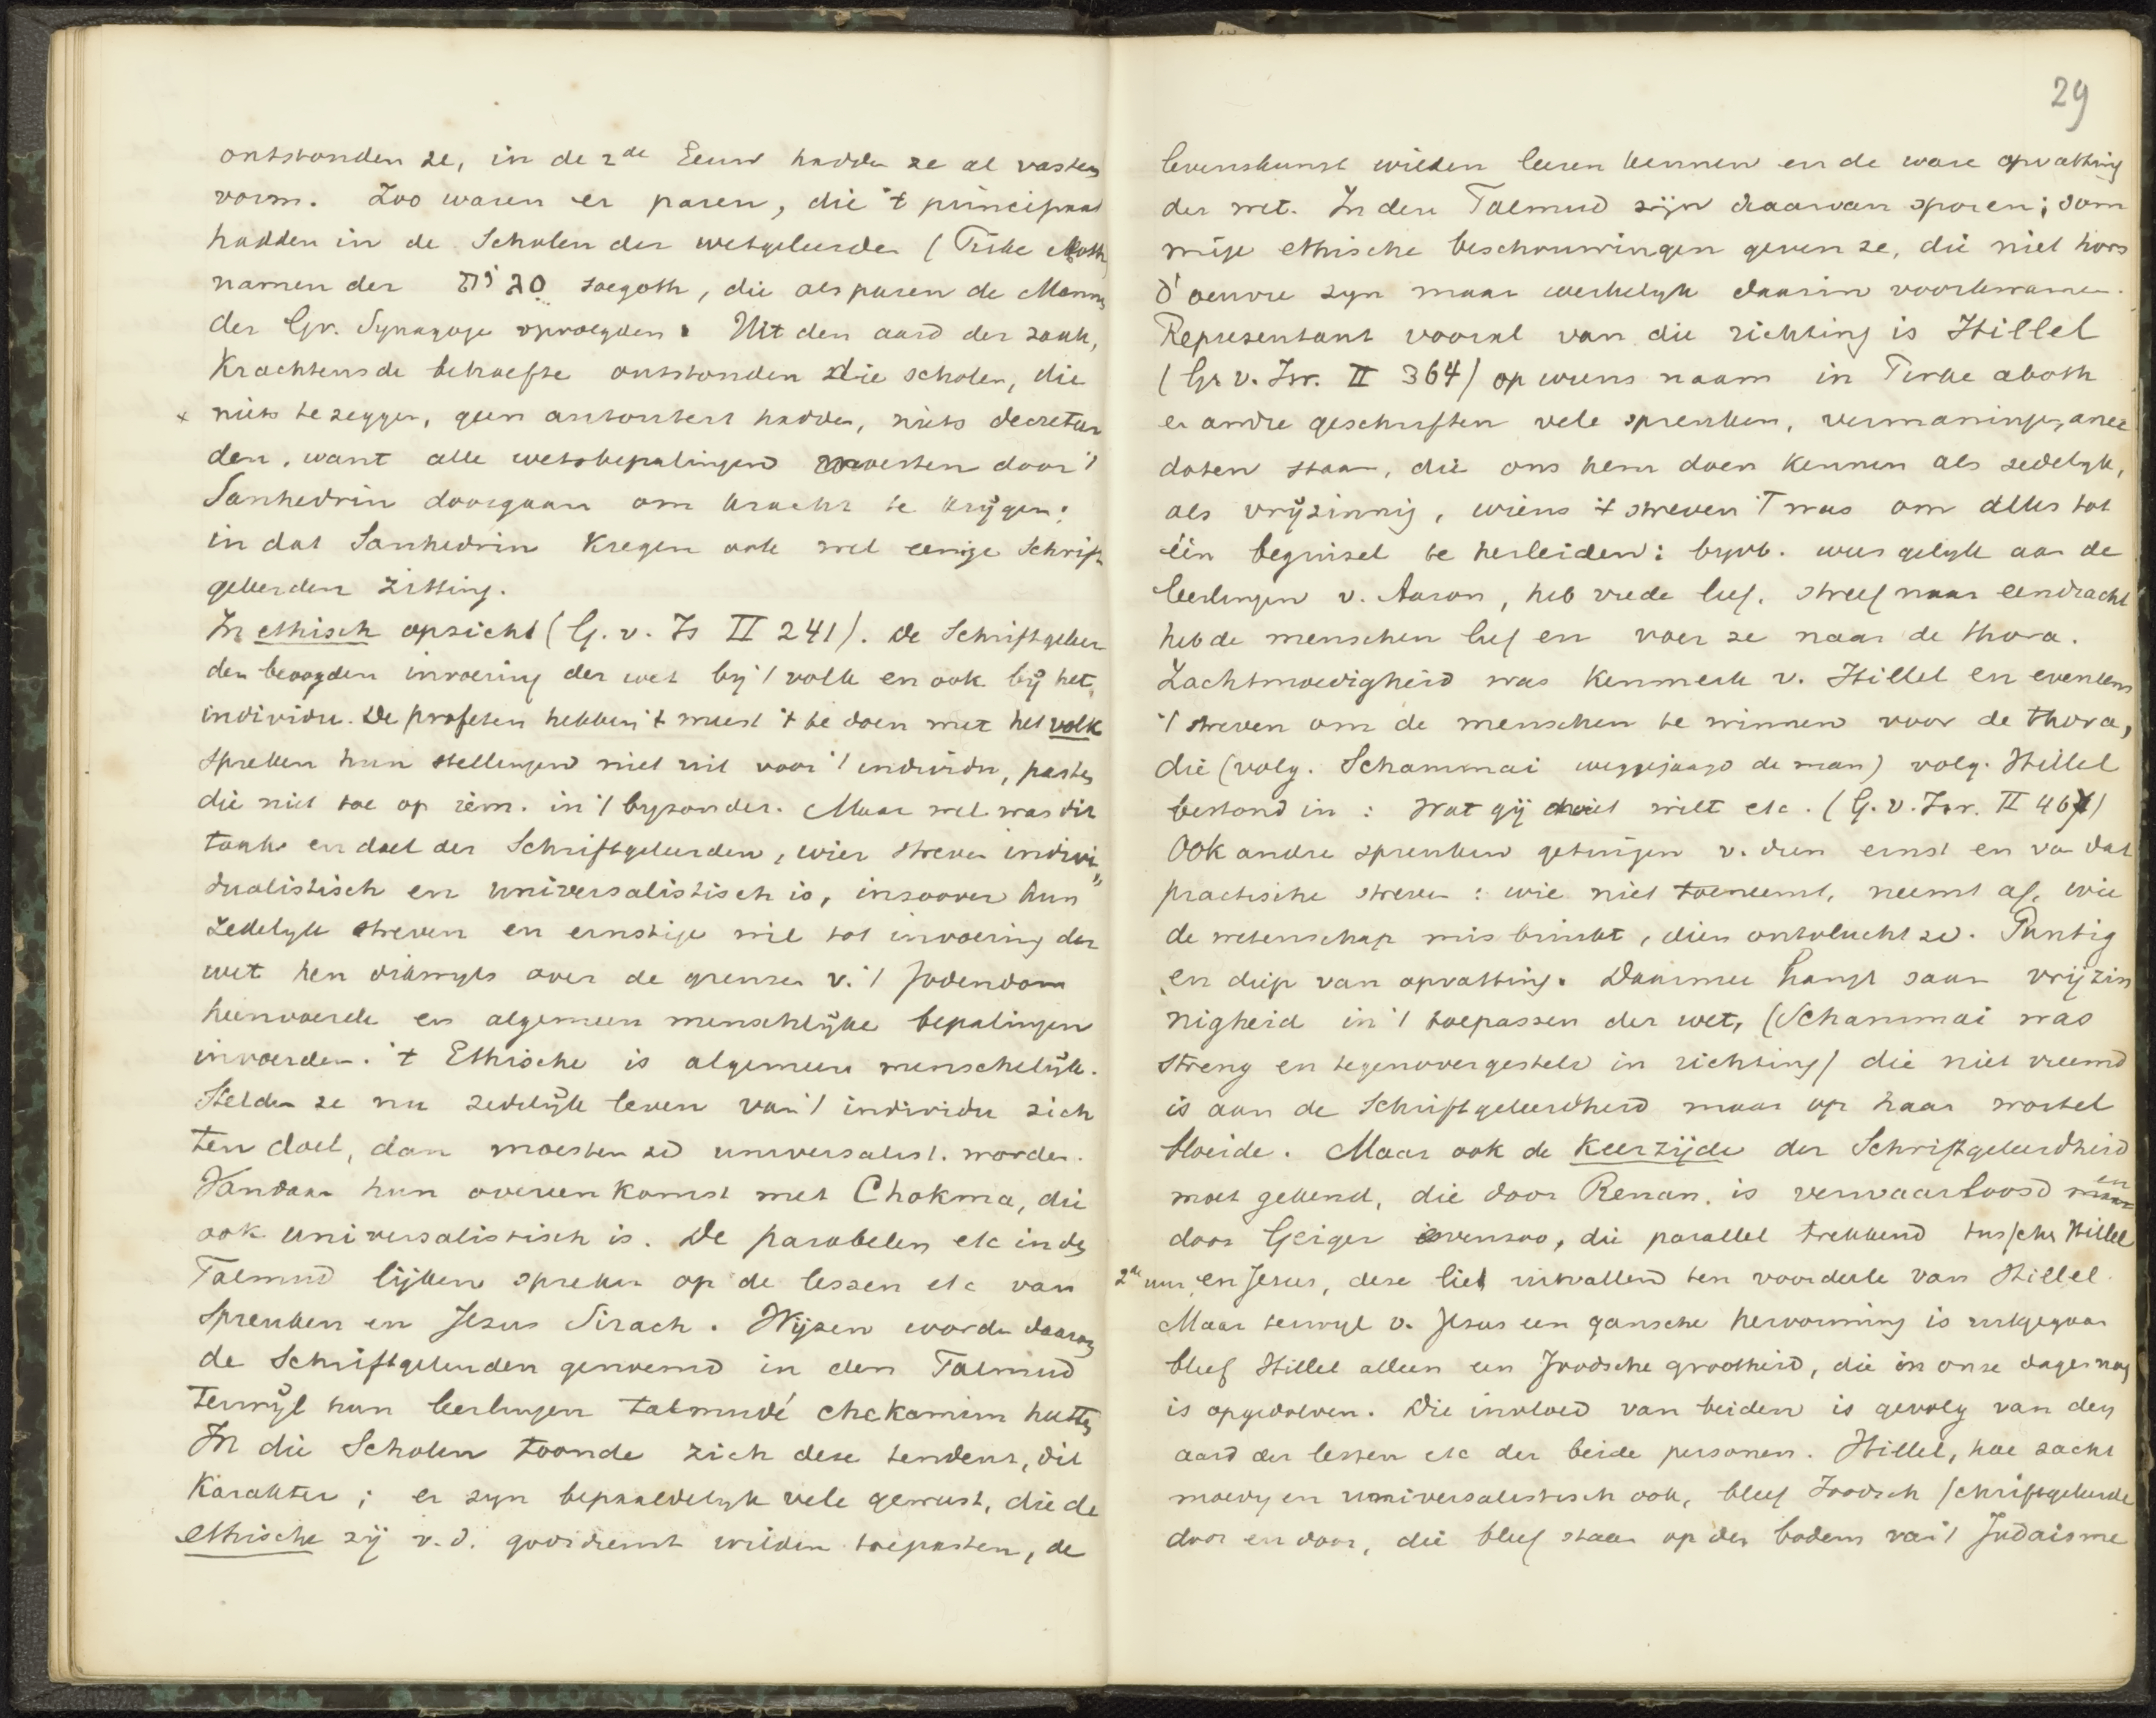 ontstonden ze, in de 2de Eeuw hadden ze al vasten
vorm. Zoo waren er paren, die 't principaat
hadden in de Scholen der wetgeleerden (Pirke Aboth
namen der soegoth, die als paren de Mannen
der Gr. Synagoge opvolgden. Uit den aard der zaak,
Krachtens de behoefte ontstonden die scholen, die
x niets te zeggen, geen autoriteit hadden, niets decreteer
den, want alle wetsbepalingen moesten door 't
Sanhedrin doorgaan om kracht te krijgen:
in dat Sanhedrin Kregen ook wel eenige Schrift
geleerden zitting.
In ethisch opzicht (G. v. Is II 241). De Schriftgeleer
den beoogden invoering der wet bij 't volk en ook bij het
individu. De profeten hebben 't meest 't te doen met het volk
spreken hun stellingen niet uit voor 't individu, pasten
die niet toe op iem. in 't byzonder. Maar wel was dit
taak en doel der Schriftgeleerden, wier streven indivi„
dualistisch en universalistisch is, inzoover hun
zedelyk streven en ernstige wil tot invoering der
wet hen dikwyls over de grenzen v. 't Jodendom
heenvoerde en algemeen menschlijke bepalingen
invoerden. 't Ethische is algemeen menschelijk.
Stelden ze nu zedelijk leven van 't individu zich
ten doel, dan moesten ze universalist. worden.
Vandaar hun overeenkomst met Chokma, die
ook universalistisch is. De parabelen etc in de
Talmud lijken spreken op de lessen etc van
Spreuken en Jezus Sirach. Wijzen worden daarom
de Schriftgeleerden genoemd in den Talmud
Terwijl hun leerlingen talmudé chakamim heetten
In die Scholen toonde zich deze tendenz, dit
Karakter; er zyn bepaaldelyk vele geweest, die de
ethische zij v. d. godsdienst wilden toepasten, de
29
levenskunst wilden leeren kennen en de ware opvatting
der wet. In den Talmud zijn daarvan sporen; som
mige ethische beschouwingen geven ze, die niet hors
d'oeuvre zyn maar werkelyk daarin voorkwamen.
Representant vooral van die richting is Hillel
(G. v. Isr. II 364) op wiens naam in Pirke aboth
en andre geschriften vele spreuken, vermaningen, anec
doten staan, die ons hem doen Kennen als zedelyk,
als vrijzinnig, wiens 't streven 't was om alles tot
één beginsel te herleiden: byvb. wees gelyk aan de
leerlingen v. Aaron, heb vrede lief. streef naar eendracht
heb de menschen lief en voer ze naar de thora.
Zachtmoedigheid was Kenmerk v. Hillel en eveneens
't streven om de menschen te winnen voor de thora,
die (volg. Schammai weggejaagd de man) volg. Hillel
bestond in: Wat gij niet wilt etc. (G. v. Isr. II 467)
Ook andre spreuken getuigen v. dien ernst en van dat
practische streven: wie niet toeneemt, neemt af, wie
de wetenschap misbruikt, dien ontvlucht ze. Puntig
en diep van opvatting. Daarmee hangt saam vrijzin
nigheid in 't toepassen der wet, (Schammai was
streng en tegenovergesteld in richting) die niet vreemd
is aan de Schriftgeleerdheid maar op haar wortel
bloeide. Maar ook de Keerzijde der Schriftgeleerdheid
moet gekend, die door Renan is verwaarloosd en
door Geiger evenzoo, die parallel trekkend tusschen Hillel
2de uur en Jezus, deze liet uitvallend ten voordeele van Hillel.
Maar terwyl v. Jezus een gansche hervorming is uitgegaan
bleef Hillel alleen een Joodsche grootheid, die in onze dagen nog
is opgedolven. Die invloed van beiden is gevolg van den
aard der lessen etc der beide personen. Hillel, hoe zacht
moedig en universalistisch ook, bleef Joodsch schriftgeleerde
door en door, die bleef staan op den bodem van 't Judaisme